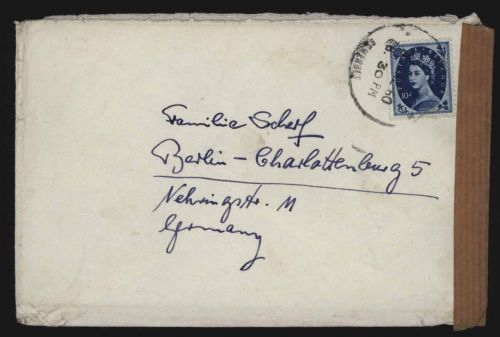 30 PM
60
POSTAGE
10D
Familie Scherf
Berlin - Charlottenburg 5
Nehringstr. 11
Germany